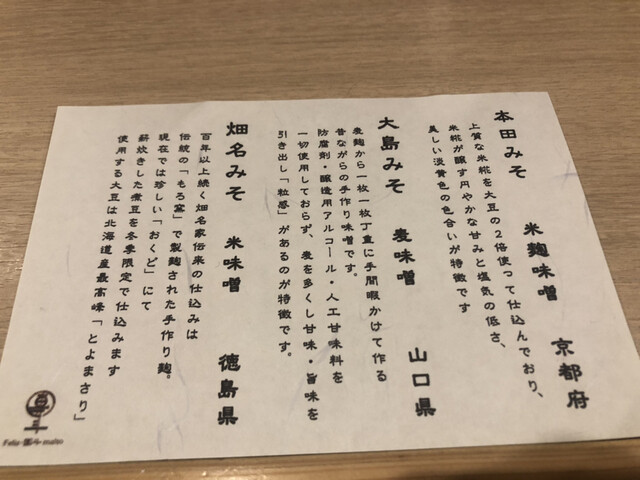 本田みそ　米麹味噌　京都府
上質な米糀を大豆の2倍使って仕込んでおり、
米糀が醸す円やかな甘みと塩気の低さ、
美しい淡黄色の色合いが特徴です
大島みそ　麦味噌　山口県
麦麹から一枚一枚丁重に手間暇かけて作る
昔ながらの手作り味噌です。
防腐剤・醸造用アルコール・人工甘味料を
一切使用しておらず、麦を多くし甘味・旨味を
引き出し「粒感」があるのが特徴です。
畑名みそ　米味噌　徳島県
百年以上続く畑名家伝来の仕込みは
伝統の「もろ室」で製麹された手作り麹。
現在では珍しい「おくど」にて
薪炊きした煮豆を冬季限定で仕込みます
使用する大豆は北海道産最高峰「とよまさり」